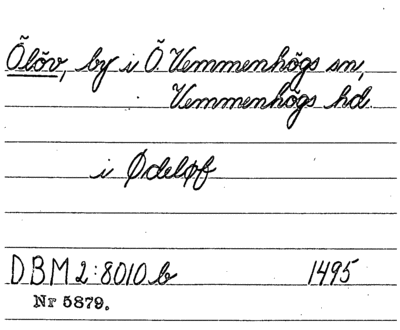 Õlöv, by i Ö Vemmenhögs sn,
Vemmenhögs hd.
i Ødeløf
DBM 2:8010 b 1495
Nr 5879.